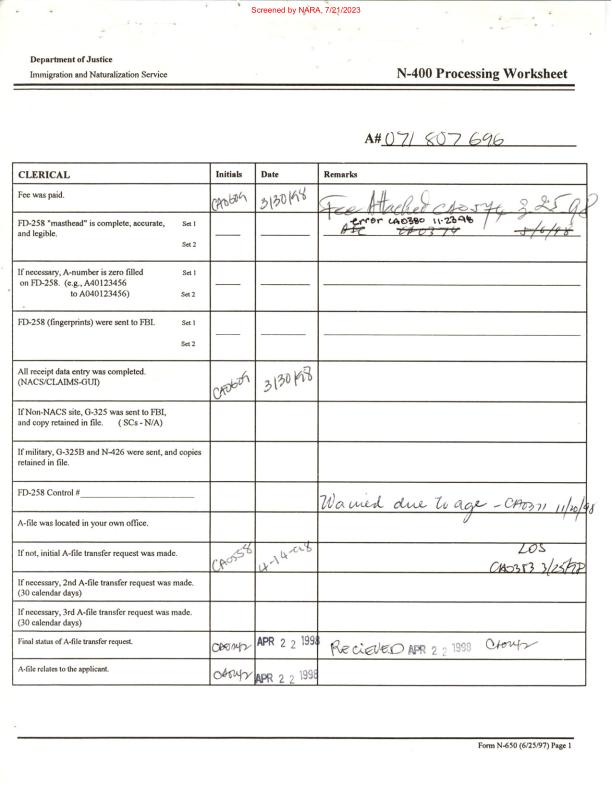 Screened by NARA, 7/21/2023
Department of Justice
Immigration and Naturalization Service
N-400 Processing Worksheet
A# 071 807 696
CLERICAL Initials Date Remarks
Fee was paid. CA0609 3/30/98 Fee Attached CA0574 3.25.98
error CA0380 11-23-98
FD-258 "masthead" is complete, accurate, Set 1
and legible.
Set 2
If necessary, A-number is zero filled Set 1
on FD-258. (e.g., A40123456
to A040123456) Set 2
FD-258 (fingerprints) were sent to FBI. Set 1
Set 2
All receipt data entry was completed.
(NACS/CLAIMS-GUI) CA0609 3/30/98
If Non-NACS site, G-325 was sent to FBI,
and copy retained in file. ( SCs - N/A)
If military, G-325B and N-426 were sent, and copies
retained in file.
FD-258 Control #
Waived due to age - CA0371 11/20/98
A-file was located in your own office.
If not, initial A-file transfer request was made. CA0558 4-14-98 LOS
CA0353 3/25/98
If necessary, 2nd A-file transfer request was made.
(30 calendar days)
If necessary, 3rd A-file transfer request was made.
(30 calendar days)
Final status of A-file transfer request. APR 22 1998 RECIEVED APR 22 1998
A-file relates to the applicant. APR 22 1998
Form N-650 (6/25/97) Page 1